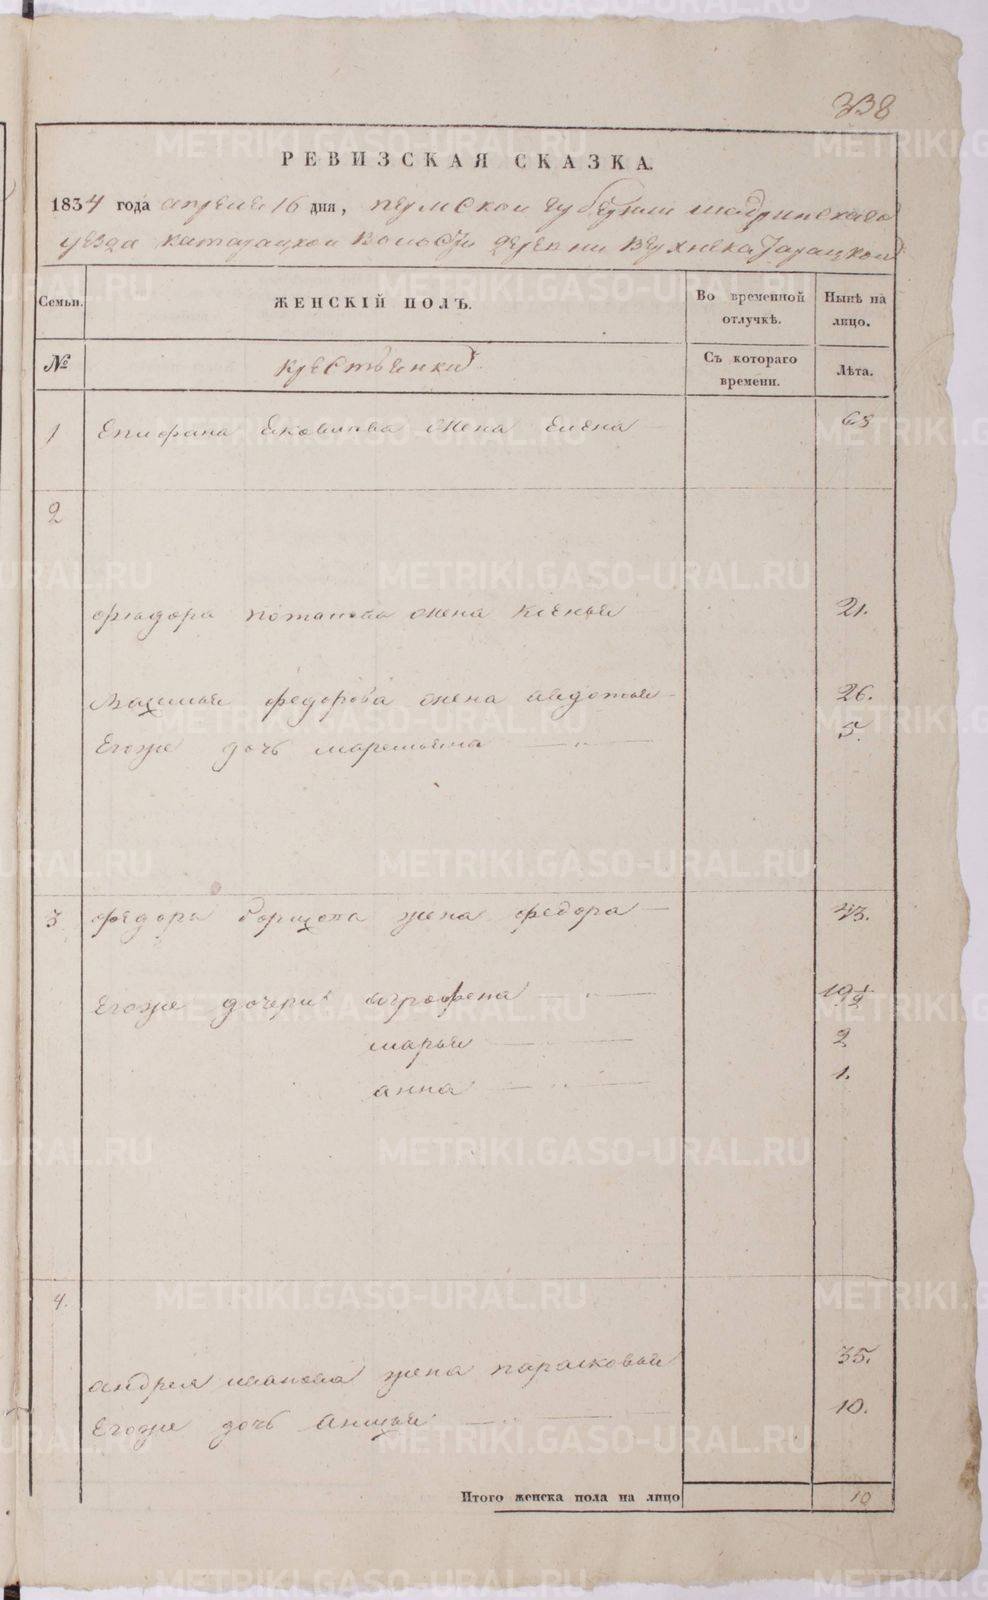 338
РЕВИЗСКАЯ СКАЗКА.
1834 года апреля 16 дня, пермской губернии шадринскаго
уезда катарацкой волости деревни верхнекатарацкой
Семьи. ЖЕНСКІЙ ПОЛЪ. Во временной отлучкѣ. Нынѣ на лицо.
№ крестьянки Съ котораго времени. Лѣта.
1 Епифана Яковлева жена Елена 68
2
фиадора потапова жена ксенья 21.
федорова жена авдотья 26.
Егоже дочь маремьяна 5.
3 федора жена федора 43.
Егоже дочери агрофена 10 1/2
марья 2
анна 1.
4.
андрея иванова жена парасковья 35.
Егоже дочь анисья 10.
Итого женска пола на лицо 10
METRIKI.GASO-URAL.RU